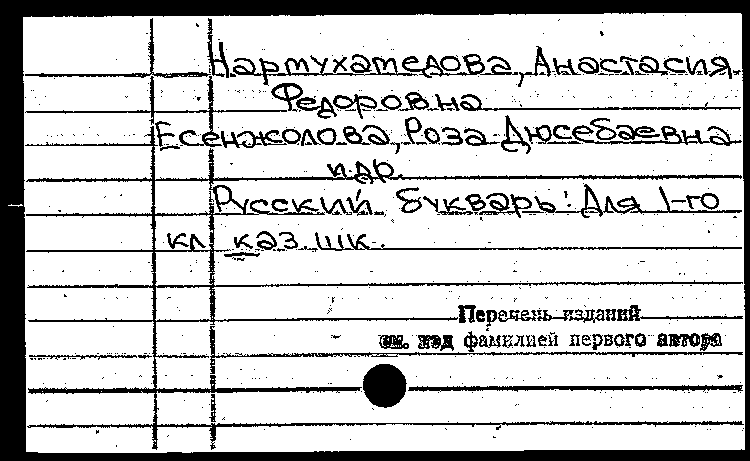 Нармухамедова, Анастасия
Федоровна
Есенжолова, Роза Дюсебаевна
и др.
Русский букварь: Для 1-го
кл каз. шк.
Перечень изданий
см. под фамилией первого автора